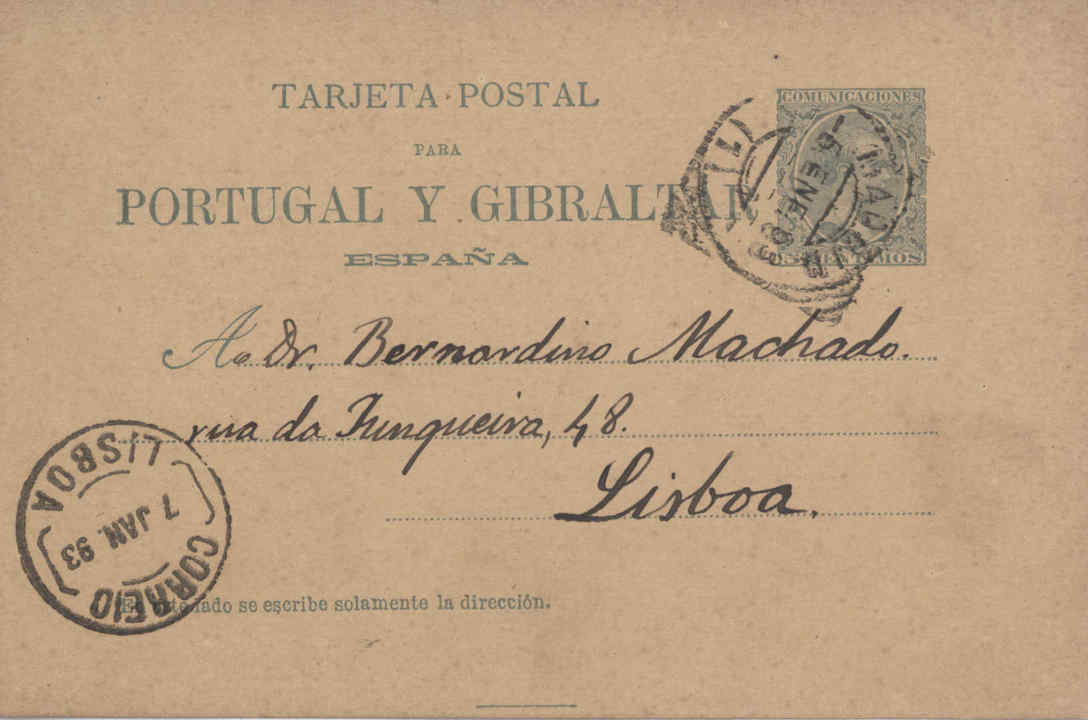 TARJETA POSTAL
PARA
PORTUGAL Y GIBRALTAR
ESPAÑA
COMUNICACIONES
5 CÉNTIMOS
MADRID
ENE
(1)
A Dr. Bernardino Machado.
rua da Junqueira, 48.
Lisboa.
LISBOA
7 JAN. 93
CORREIO
En este lado se escribe solamente la dirección.